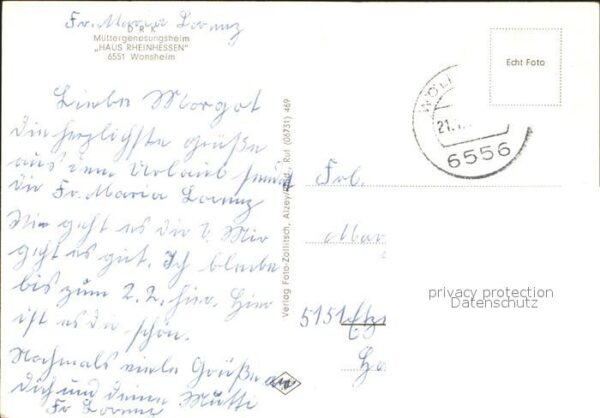 Fr. Maria Lorenz
DRK
Müttergenesungsheim
„HAUS RHEINHESSEN"
6551 Wonsheim
Liebe Margot
die herzlichste Grüße
aus dem Urlaub sendet
dir Fr. Maria Lorenz
Wie geht es dir? Mir
geht es gut. Ich bleibe
bis zum 2.2. hier. Hier
ist es dir schön.
Nochmals viele Grüße an
dich und deine Mutti
Fr Lorenz
Verlag Foto-Zollitsch, Alzey/Rhld., Ruf (06731) 469
Echt Foto
WÖLL
21.1.
6556
Frl.
Mar
5151
privacy protection
Datenschutz